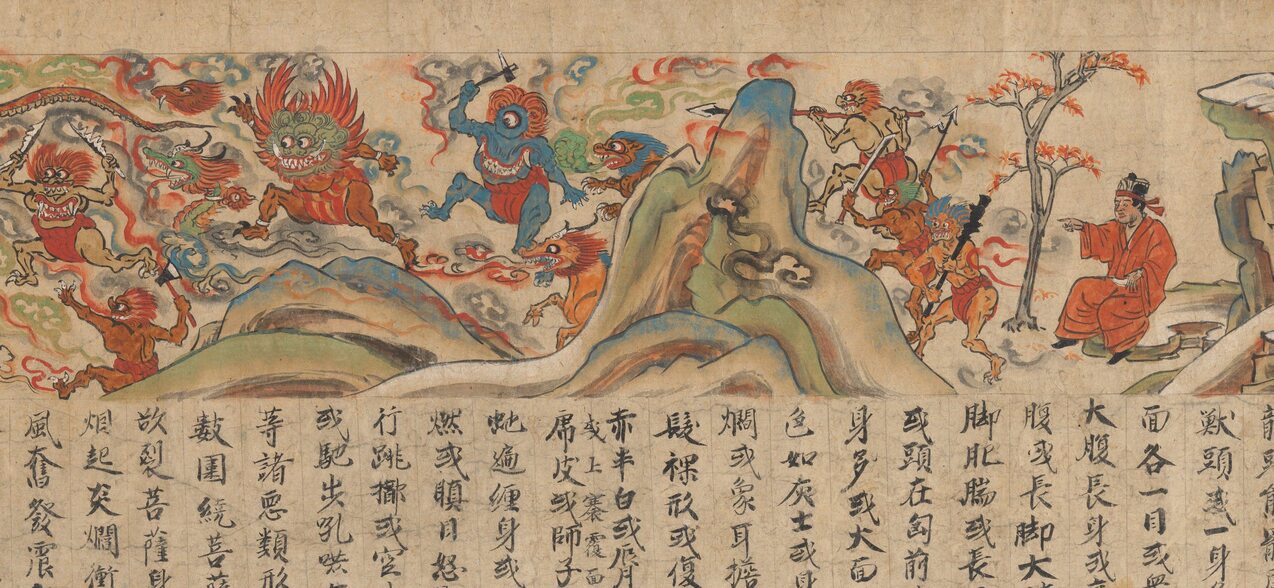 龍頭
獸頭或一身
面各一目或衆
大腹長身或
腹或長脚大
脚肥腨或長
或頭在匈前
身多或大面
色如灰土或身
爛或象耳擔
髮裸形或復
赤半白或脣
或上褰覆面
虎皮或師子
虵遍纏身或
燃或瞋目怒
行跳擲或空
或馳步吼
等諸惡類形
數圍繞菩薩
欲裂菩薩身
烟起炎爛衝
風奮發震